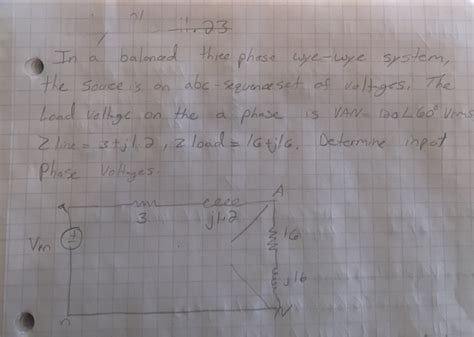 11.23
In a balanced three phase wye-wye system,
the source is an abc-sequence set of voltages. The
Load voltage on the a phase is VAN=120∠60° Vrms
Zline = 3+j1.2, Zload = 16+j16. Determine input
Phase voltages.
a A
3 j1.2
Van 16
j16
n N